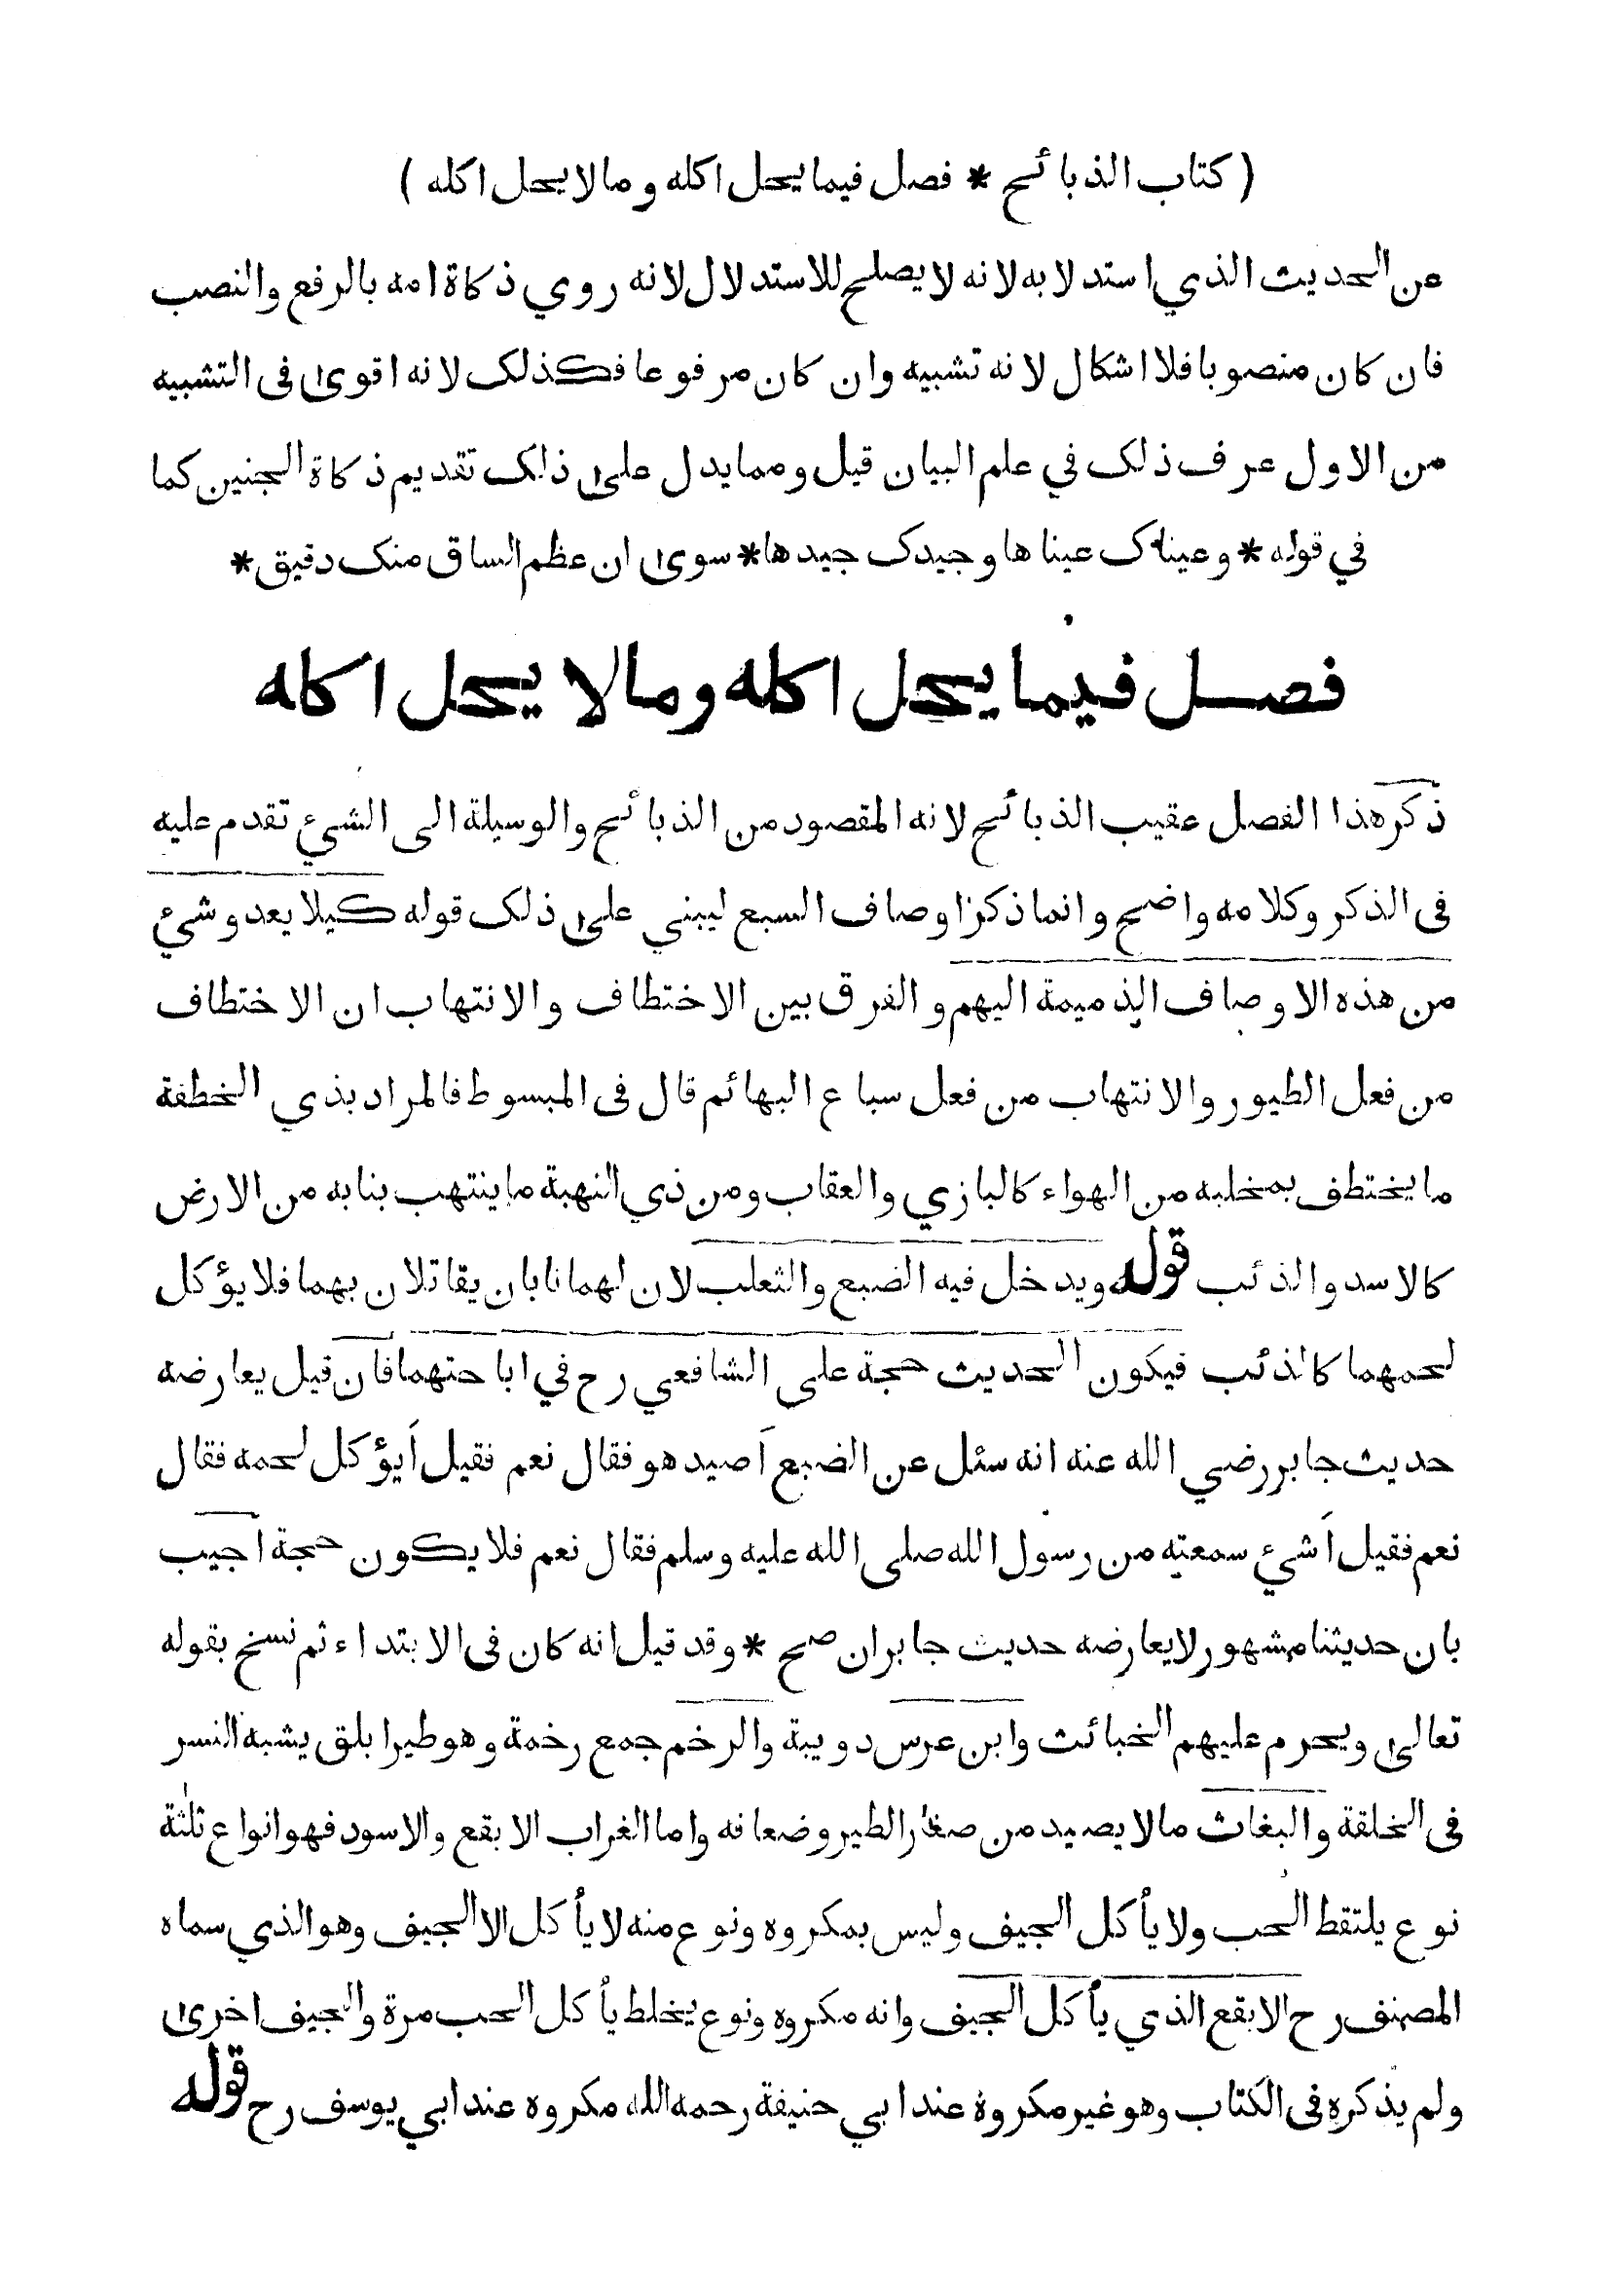 ( كتاب الذبائح * فصل فيما يحل اكله وما لا يحل اكله )
عن الحديث الذي استدلا به لانه لا يصلح للاستدلال لانه روي ذكاة امه بالرفع والنصب
فان كان منصوبا فلا اشكال لانه تشبيه وان كان مرفوعا فكذلك لانه اقوى في التشبيه
من الاول عرف ذلك في علم البيان قيل ومما يدل على ذلك تقديم ذكاة الجنين كما
في قوله * وعيناك عيناها وجيدك جيدها * سوى ان عظم الساق منك دقيق *
فصل فيما يحل اكله وما لا يحل اكله
ذكر هذا الفصل عقيب الذبائح لانه المقصود من الذبائح والوسيلة الى الشيء تقدم عليه
في الذكر وكلامه واضح وانما ذكر اوصاف السبع ليبني على ذلك قوله كيلا يعدو شيء
من هذه الاوصاف الذميمة اليهم والفرق بين الاختطاف والانتهاب ان الاختطاف
من فعل الطيور والانتهاب من فعل سباع البهائم قال في المبسوط فالمراد بذي الخطفة
ما يختطف بمخلبه من الهواء كالبازي والعقاب ومن ذي النهبة ما ينتهب بنابه من الارض
كالاسد والذئب قوله ويدخل فيه الضبع والثعلب لان لهما نابان يقاتلان بهما فلا يؤكل
لحمهما كالذئب فيكون الحديث حجة على الشافعي رح في اباحتهما فان قيل يعارضه
حديث جابر رضي الله عنه انه سئل عن الضبع أصيد هو فقال نعم فقيل أيؤكل لحمه فقال
نعم فقيل أشيء سمعته من رسول الله صلى الله عليه وسلم فقال نعم فلا يكون حجة اجيب
بان حديثنا مشهور لا يعارضه حديث جابر ان صح * وقد قيل انه كان في الابتداء ثم نسخ بقوله
تعالى ويحرم عليهم الخبائث وابن عرس دويبة والرخم جمع رخمة وهو طير ابلق يشبه النسر
في الخلقة والبغاث ما لا يصيد من صغار الطير وضعافه واما الغراب الابقع والاسود فهو انواع ثلٰثة
نوع يلتقط الحب ولا يأكل الجيف وليس بمكروه ونوع منه لا يأكل الا الجيف وهو الذي سماه
المصنف رح الابقع الذي يأكل الجيف وانه مكروه ونوع يخلط يأكل الحب مرة والجيف اخرى
ولم يذكره في الكتاب وهو غير مكروه عند ابي حنيفة رحمه الله مكروه عند ابي يوسف رح قوله